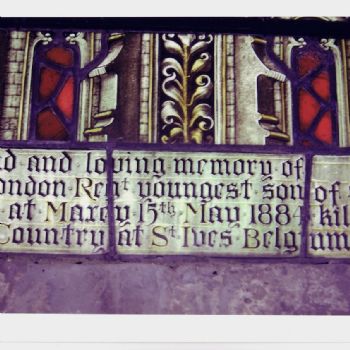 d and loving memory of
ondon Regt youngest son of
at Maxey 15th May 1884 kil
Country at St Ives Belg um